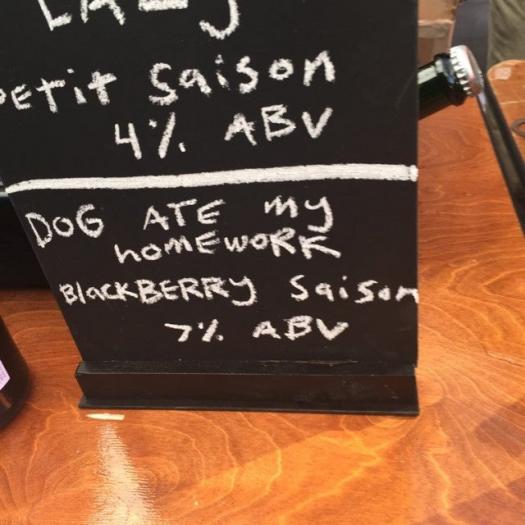 Petit Saison
4% ABV
DOG ATE my
homEwoRK
BlackBERRY Saison
7% ABV